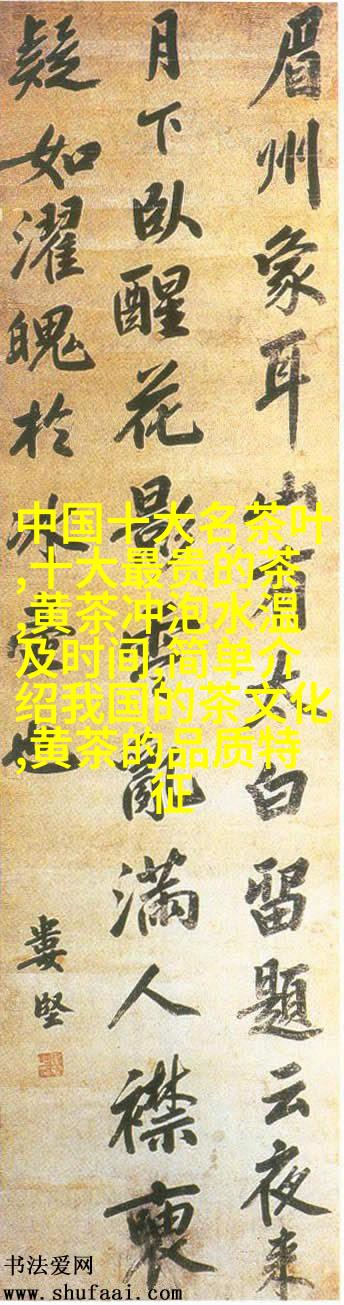 眉州象耳山有太白留題云夜来
月下臥醒花影亂滿人襟
疑如濯魄於冰也
婁堅
中国十大名茶叶
,十大最贵的茶
,黄茶冲泡水温
及时间,简单介
绍我国的茶文化
,黄茶的品质特
征
书法爱网
www.shufaai.com